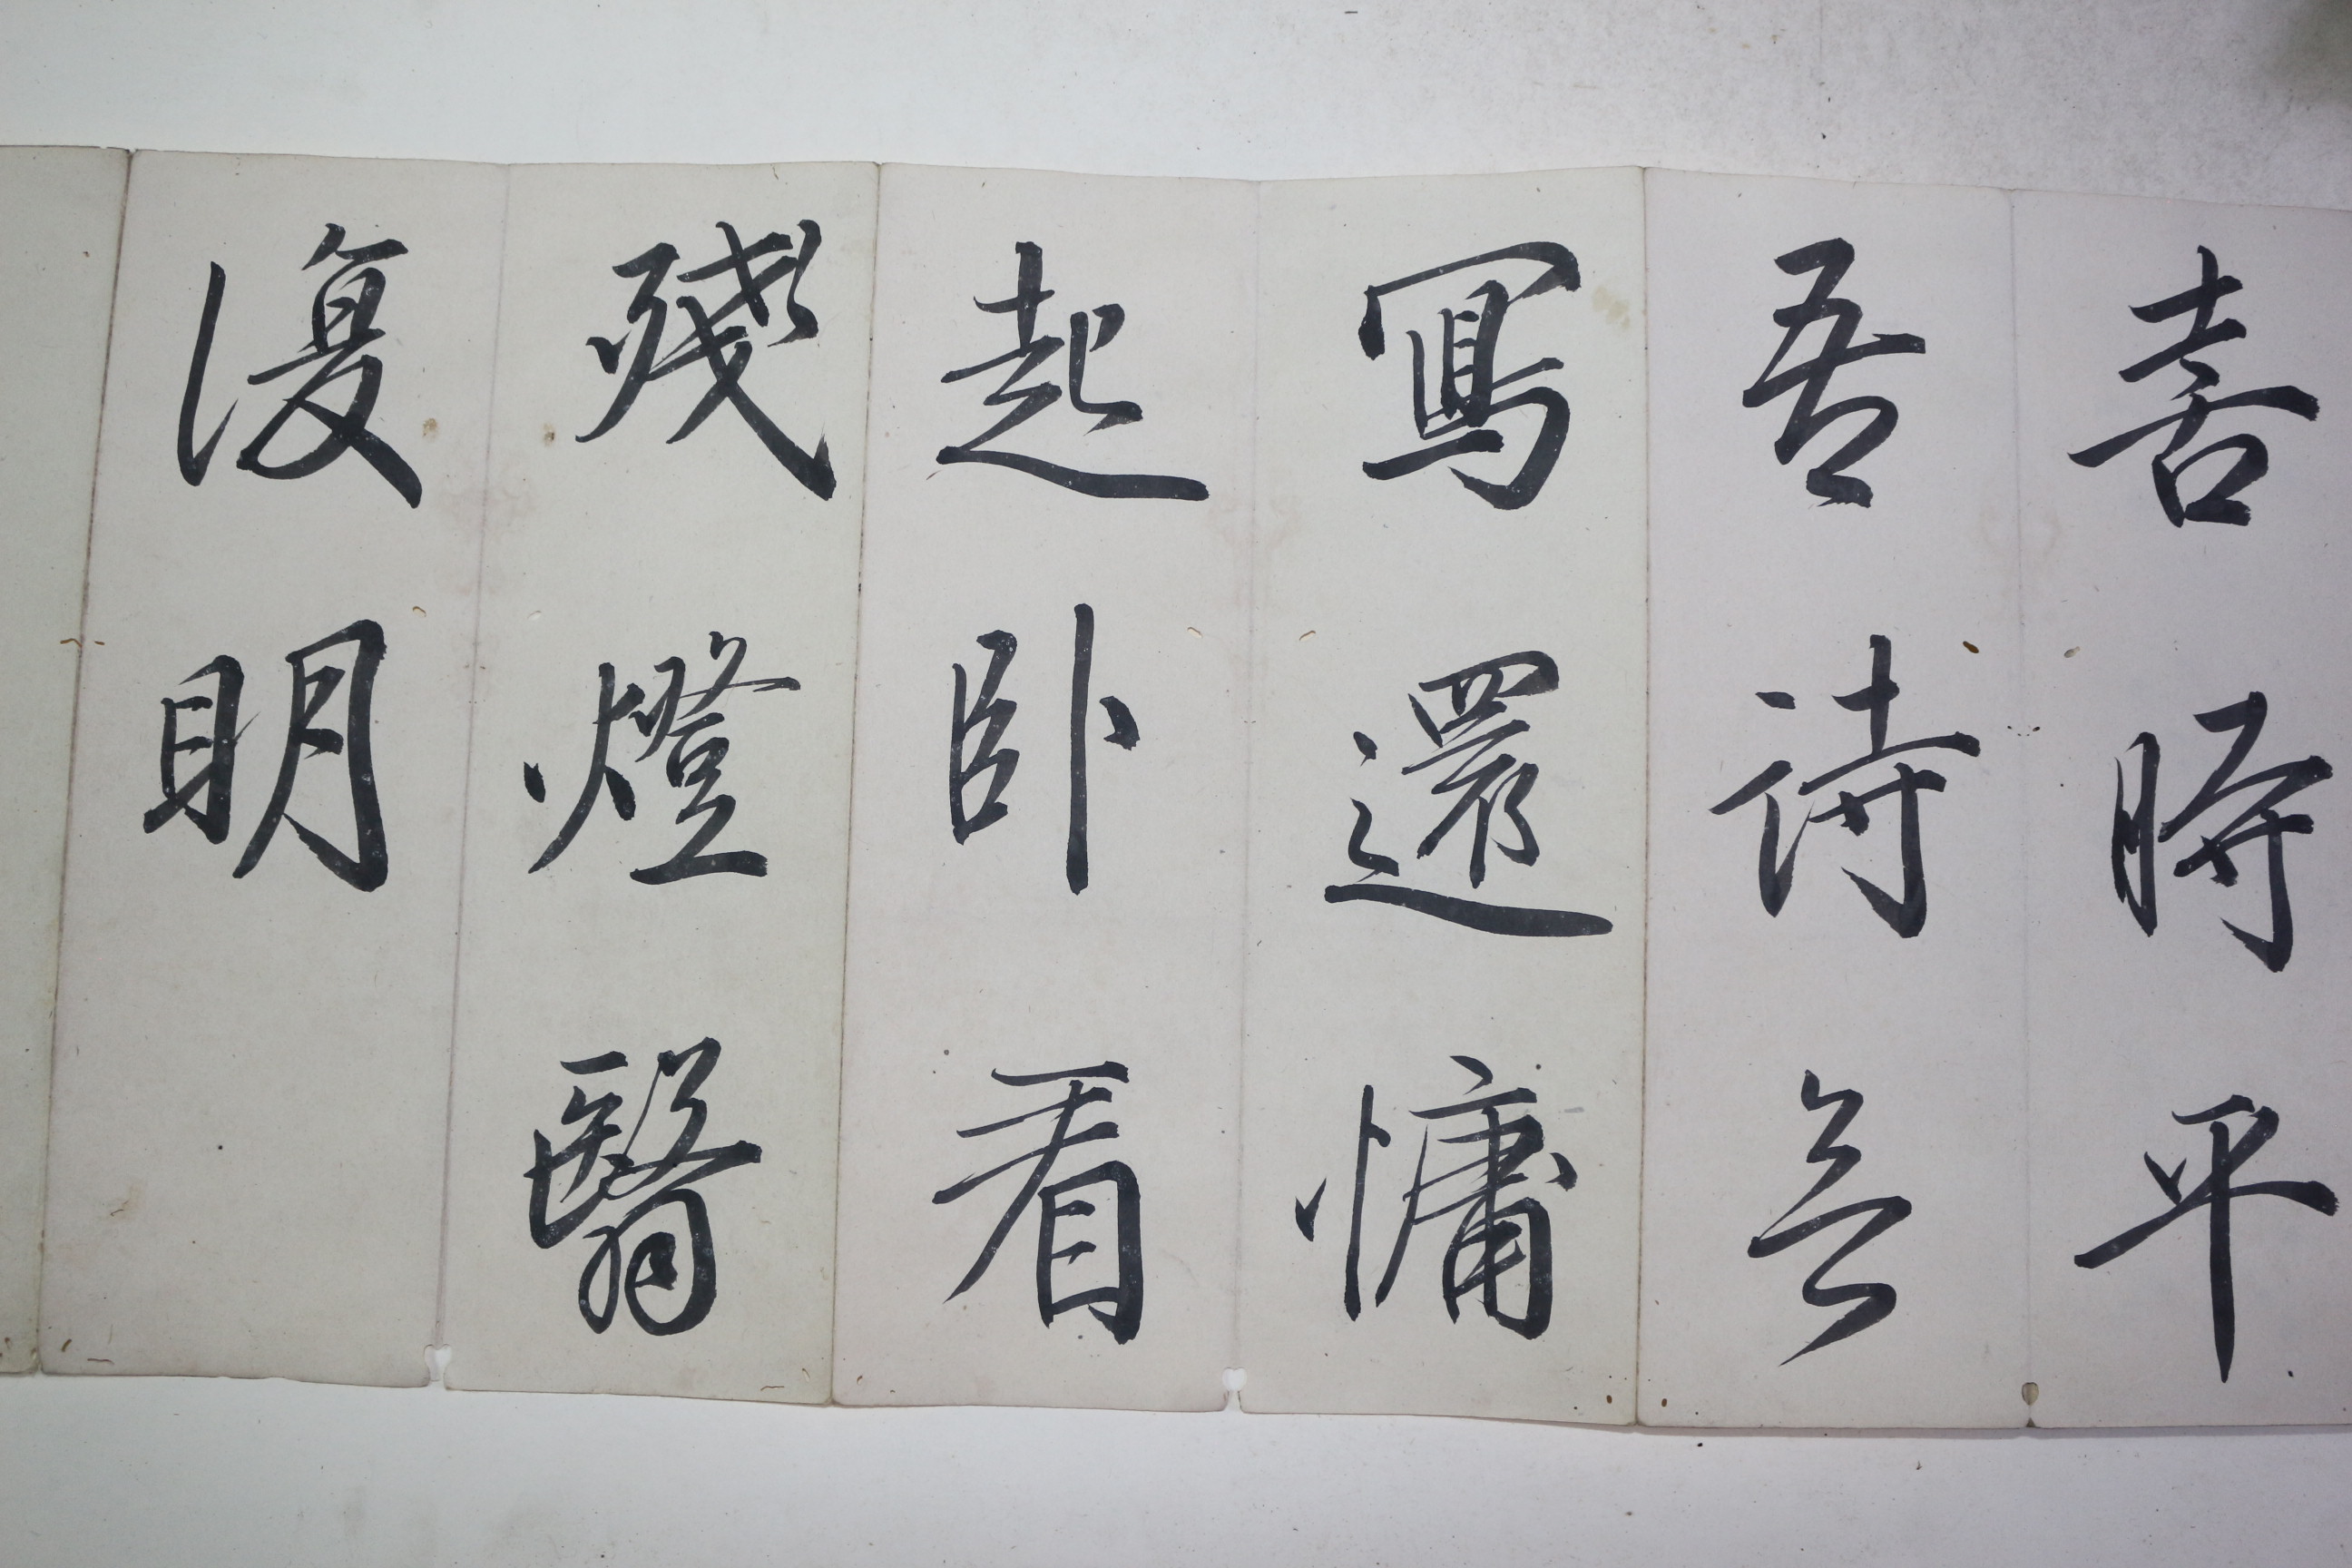 喜時平
吾詩
寫還慵
起卧看
殘燈翳
復明